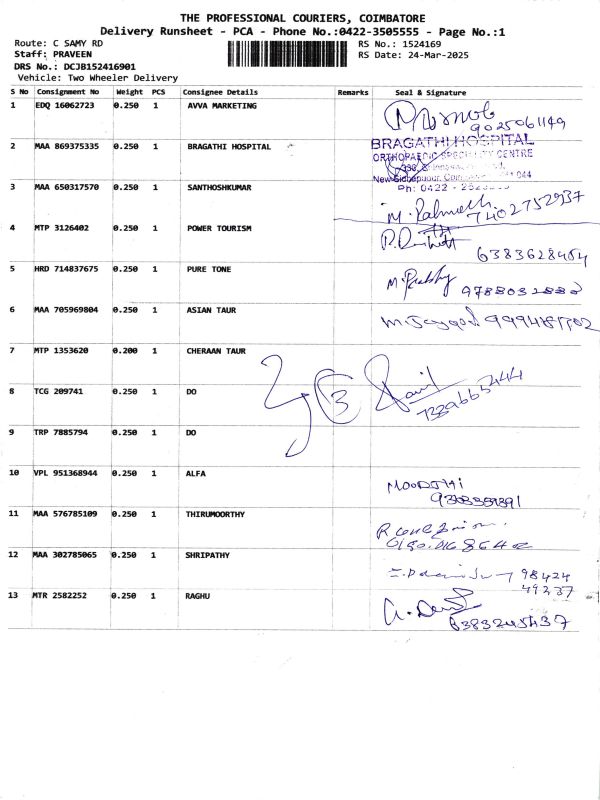 THE PROFESSIONAL COURIERS, COIMBATORE
Delivery Runsheet - PCA - Phone No.:0422-3505555 - Page No.:1
Route: C SAMY RD
RS No.: 1524169
Staff: PRAVEEN
RS Date: 24-Mar-2025
DRS No.: DCJB152416901
Vehicle: Two Wheeler Delivery
S No Consignment No Weight PCS Consignee Details Remarks Seal & Signature
1 EDQ 16062723 0.250 1 AVVA MARKETING
9025061149
2 MAA 869375335 0.250 1 BRAGATHI HOSPITAL
BRAGATHI HOSPITAL
ORTHOPAEDIC SPECIALITY CENTRE
Ph: 0422 -
3 MAA 650317570 0.250 1 SANTHOSHKUMAR
7402752937
4 MTP 3126402 0.250 1 POWER TOURISM
6383628484
5 HRD 714837675 0.250 1 PURE TONE
9788032882
6 MAA 705969804 0.250 1 ASIAN TAUR
7 MTP 1353620 0.200 1 CHERAAN TAUR
8 TCG 209741 0.250 1 DO
3
9 TRP 7885794 0.250 1 DO
10 VPL 951368944 0.250 1 ALFA
11 MAA 576785109 0.250 1 THIRUMOORTHY
12 MAA 302785065 0.250 1 SHRIPATHY
98424
49237
13 MTR 2582252 0.250 1 RAGHU
6383245437